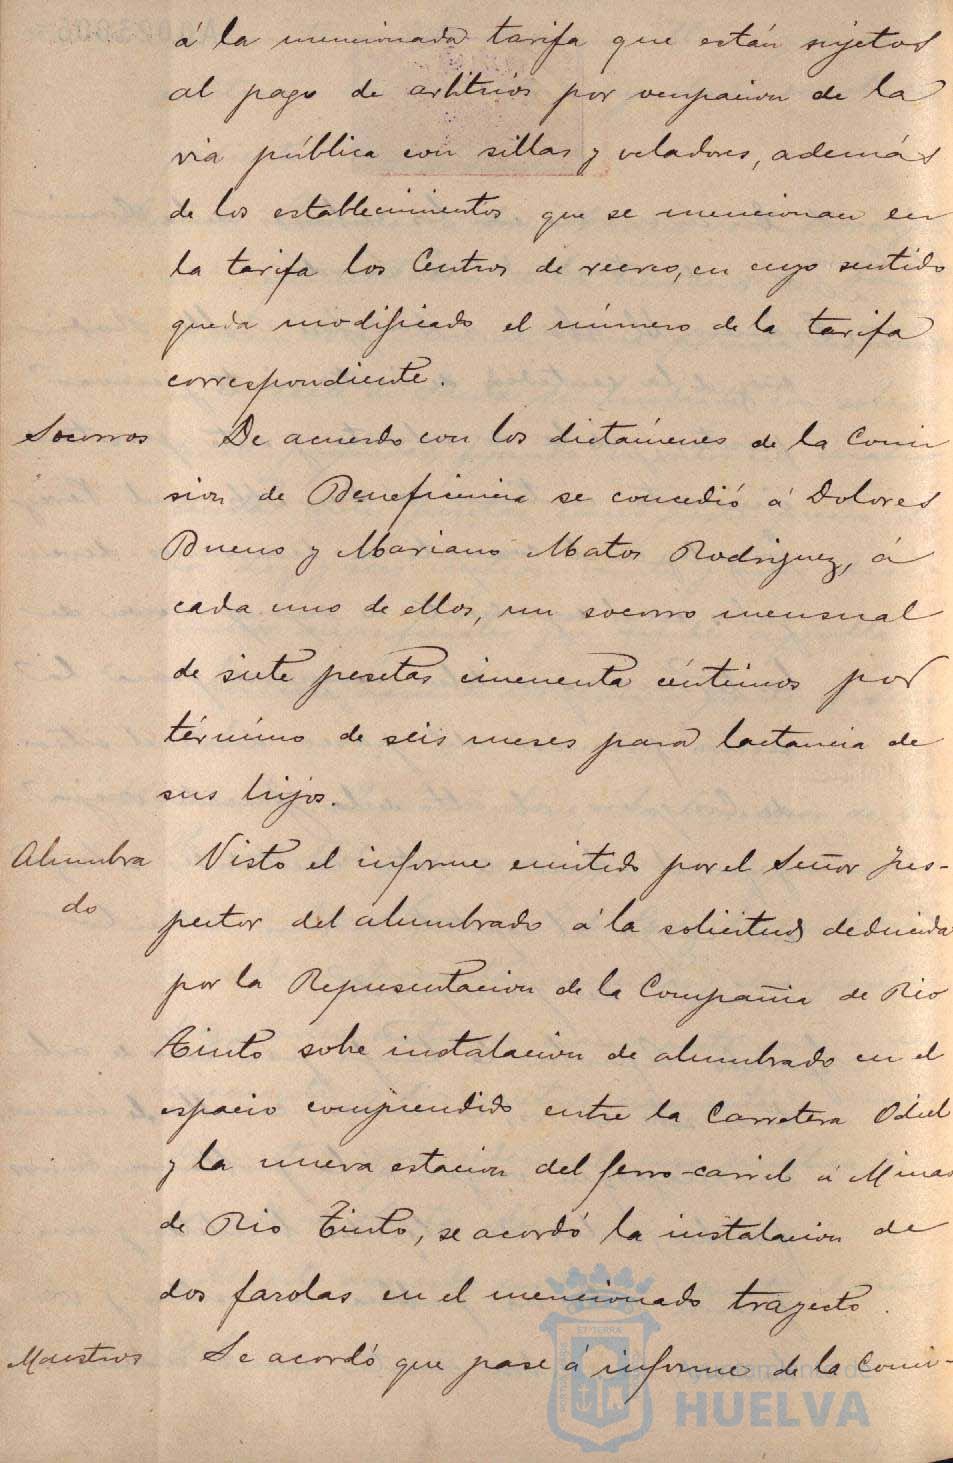 á la mencionada tarifa que están sujetos
al pago de arbitrios por ocupacion de la
via pública con sillas y veladores, además
de los establecimientos que se mencionan en
la tarifa los Centros de recreo, en cuyo sentido
queda modificado el número de la tarifa
correspondiente.
Socorros
De acuerdo con los dictámenes de la Comi
sion de Beneficencia se concedió á Dolores
Bueno y Mariano Matos Rodriguez, á
cada uno de ellos, un socorro mensual
de siete pesetas cincuenta céntimos por
término de seis meses para lactancia de
sus hijos.
Alumbra
do
Visto el informe emitido por el Señor Ins-
pector del alumbrado á la solicitud deducida
por la Representacion de la Compañia de Rio
Tinto sobre instalacion de alumbrado en el
espacio comprendido entre la Carretera Odiel
y la nueva estacion del ferro-carril á Minas
de Rio Tinto, se acordó la instalacion de
dos farolas en el mencionado trayecto.
Maestros
Se acordó que pase á informe de la Comi-
Ayuntamiento de
HUELVA